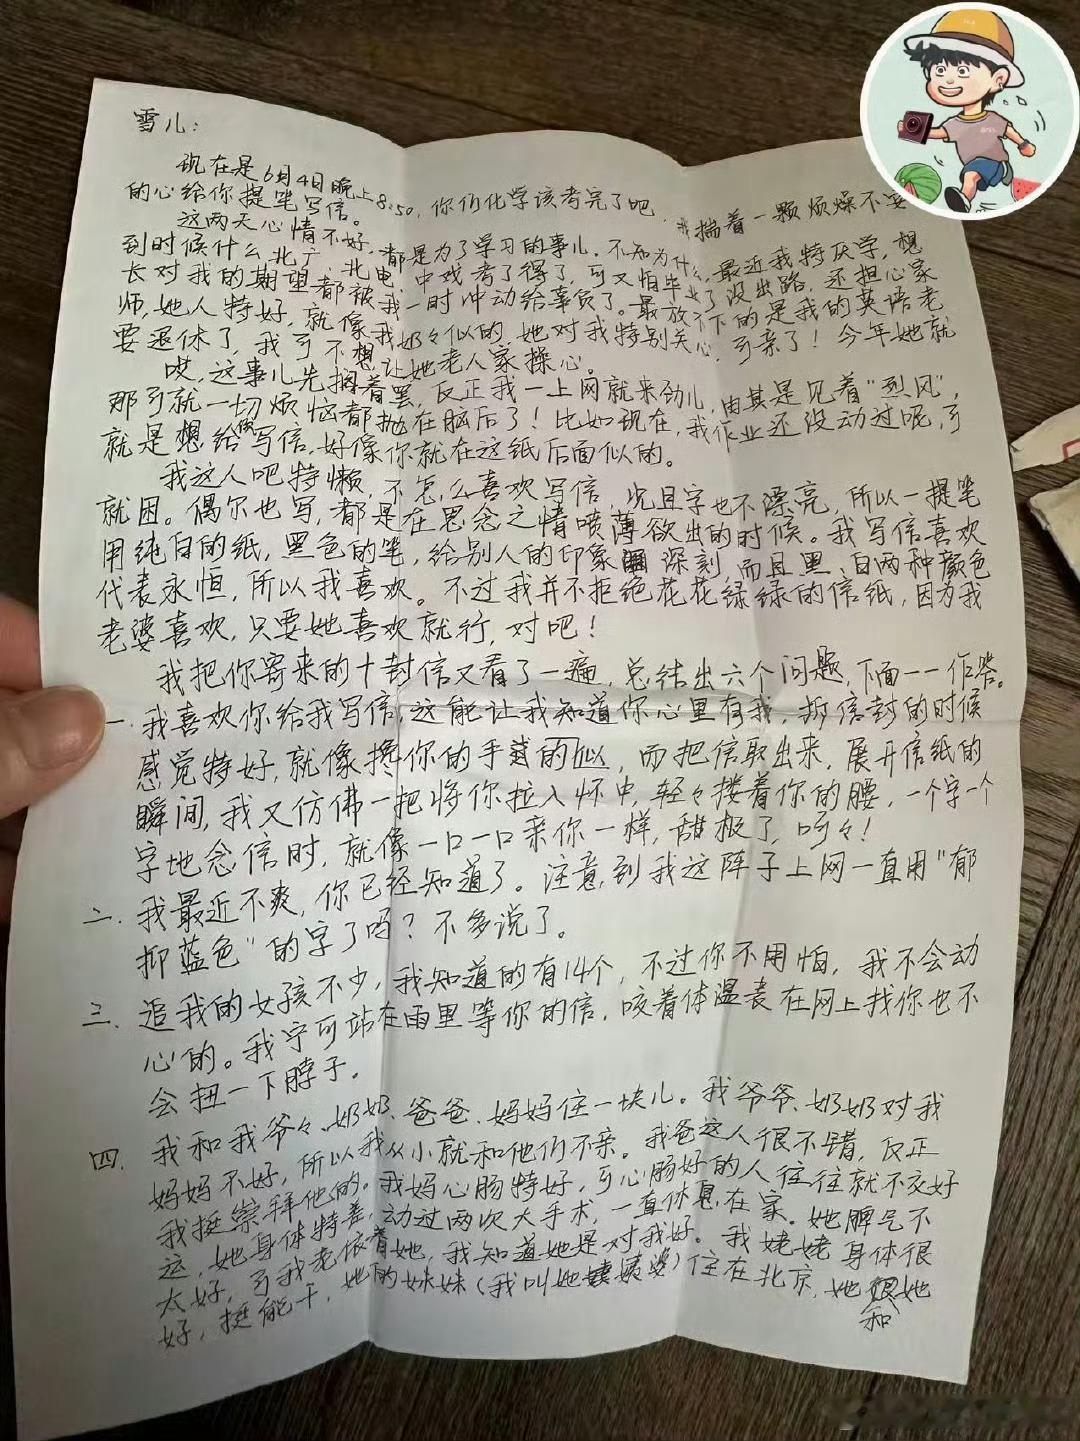 雪儿：
现在是6月4日晚上8:50，你们化学该考完了吧，我揣着一颗烦燥不安
的心给你提笔写信。
这两天心情不好，都是为了学习的事儿。不知为什么，最近我特厌学，想
到时候什么北广、北电、中戏考了得了，可又怕毕业了没出路，还担心家
长对我的期望都被我一时冲动给辜负了。最放不下的是我的英语老
师，她人特好，就像我奶々似的，她对我特别关心，可亲了！今年她就
要退休了，我可不想让她老人家操心。
哎，这事儿先搁着罢，反正我一上网就来劲儿，由其是见着“烈风”，
那可就一切烦恼都抛在脑后了！比如现在，我作业还没动过呢，可
就是想给你写信，好像你就在这纸后面似的。
我这人吧特懒，不怎么喜欢写信，况且字也不漂亮，所以一提笔
就困。偶尔也写，都是在思念之情喷薄欲出的时候。我写信喜欢
用纯白的纸，黑色的笔，给别人的印象深刻，而且黑、白两种颜色
代表永恒，所以我喜欢。不过我并不拒绝花花绿绿的信纸，因为我
老婆喜欢，只要她喜欢就行，对吧！
我把你寄来的十封信又看了一遍，总结出六个问题，下面一一作答。
一. 我喜欢你给我写信，这能让我知道你心里有我，拆信封的时候
感觉特好，就像搀你的手似的，而把信取出来，展开信纸的
瞬间，我又仿佛一把将你拉入怀中，轻々搂着你的腰，一个字一个
字地念信时，就像一口一口亲你一样，甜极了，呵々！
二. 我最近不爽，你已经知道了。注意到我这阵子上网一直用“郁
抑蓝色”的字了吗？不多说了。
三. 追我的女孩不少，我知道的有14个，不过你不用怕，我不会动
心的。我宁可站在雨里等你的信，咬着体温表在网上找你也不
会扭一下脖子。
四. 我和我爷々、奶奶、爸爸、妈妈住一块儿。我爷爷、奶奶对我
妈妈不好，所以我从小就和他们不亲。我爸这人很不错，反正
我挺崇拜他的。我妈心肠特好，可心肠好的人往往就不交好
运，她身体特差，动过两次大手术，一直休息在家。她脾气不
太好，可我老依着她，我知道她是对我好。我姥姥身体很
好，挺能干，她的妹妹（我叫她姨婆）住在北京，她和她